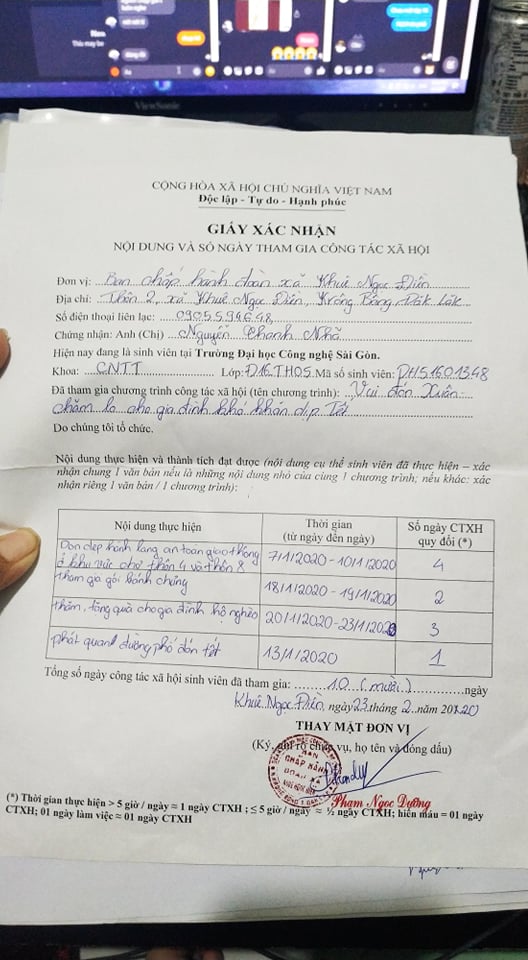 ViewSonic
CỘNG HÒA XÃ HỘI CHỦ NGHĨA VIỆT NAM
Độc lập - Tự do - Hạnh phúc
GIẤY XÁC NHẬN
NỘI DUNG VÀ SỐ NGÀY THAM GIA CÔNG TÁC XÃ HỘI
Đơn vị: Ban chấp hành đoàn xã Khuê Ngọc Điền
Địa chỉ: Thôn 2, xã Khuê Ngọc Điền, Krông Bông, Đăk Lăk
Số điện thoại liên lạc: 0905594648
Chứng nhận: Anh (Chị) Nguyễn Thanh Nhã
Hiện nay đang là sinh viên tại Trường Đại học Công nghệ Sài Gòn.
Khoa: CNTT Lớp: D16.TH05 Mã số sinh viên: DH51601348
Đã tham gia chương trình công tác xã hội (tên chương trình): Vui đón Xuân
chăm lo cho gia đình khó khăn dịp Tết
Do chúng tôi tổ chức.
Nội dung thực hiện và thành tích đạt được (nội dung cụ thể sinh viên đã thực hiện – xác
nhận chung 1 văn bản nếu là những nội dung nhỏ của cùng 1 chương trình; nếu khác: xác
nhận riêng 1 văn bản / 1 chương trình):
Nội dung thực hiện Thời gian (từ ngày đến ngày) Số ngày CTXH quy đổi (*)
Dọn dẹp hành lang an toàn giao thông
ở khu vực chợ thôn 4 và thôn 8 7/1/2020 - 10/1/2020 4
tham gia gói bánh chưng 18/1/2020 - 19/1/2020 2
thăm, tặng quà cho gia đình hộ nghèo 20/1/2020 - 23/1/2020 3
phát quang đường phố đón tết 13/1/2020 1
Tổng số ngày công tác xã hội sinh viên đã tham gia: 10 (mười) ngày
Khuê Ngọc Điền, ngày 23 tháng 2 năm 2020
THAY MẶT ĐƠN VỊ
(Ký, ghi rõ chức vụ, họ tên và đóng dấu)
BAN
CHẤP HÀNH
ĐOÀN XÃ
Phạm Ngọc Dưỡng
(*) Thời gian thực hiện > 5 giờ / ngày ≈ 1 ngày CTXH ; ≤ 5 giờ / ngày ≈ ½ ngày CTXH; hiến máu = 01 ngày
CTXH; 01 ngày làm việc ≈ 01 ngày CTXH